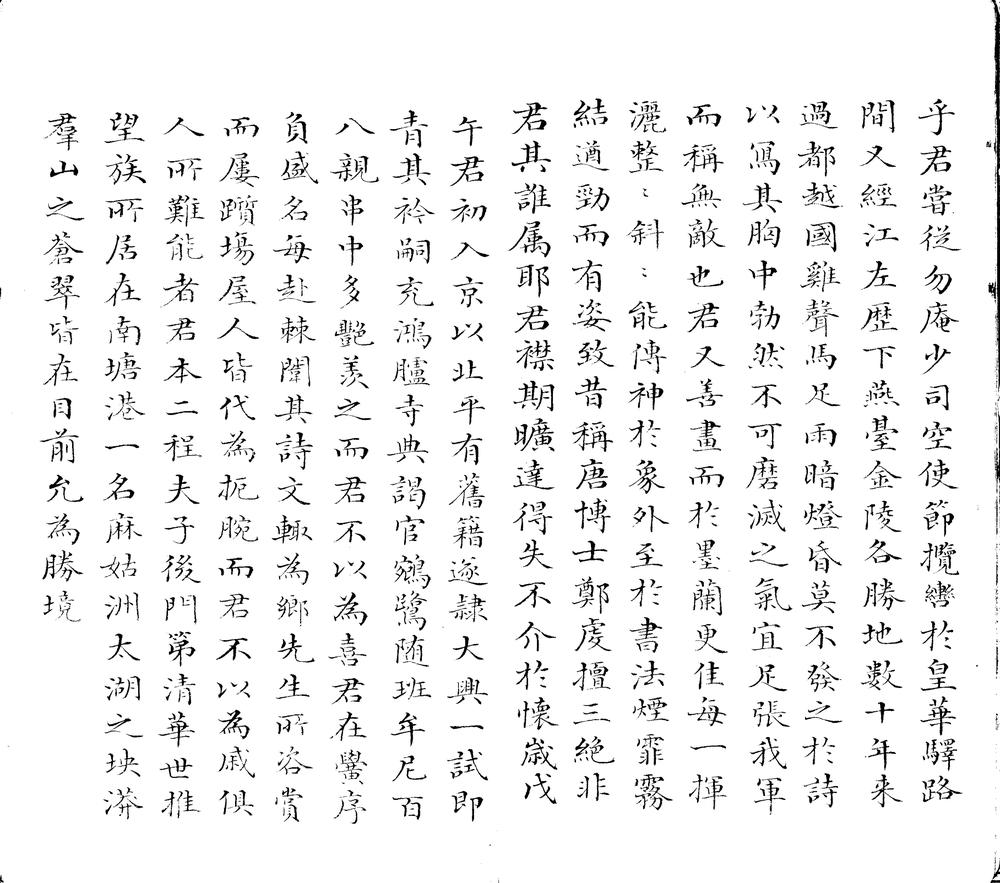 乎君嘗従勿庵少司空使節攬轡於皇華驛路
間又經江左歷下燕臺金陵各勝地數十年来
過都越國雞聲馬足雨暗燈昏莫不發之於詩
以寫其胸中勃然不可磨滅之氣宜足張我軍
而稱無敵也君又善畫而於墨蘭更佳每一揮
灑整〻斜〻能傳神於象外至於書法煙霏霧
結遒勁而有姿致昔稱唐博士鄭虔擅三絕非
君其誰屬耶君襟期曠達得失不介於懷歲戊
午君初入京以北平有舊籍遂隸大興一試即
青其衿嗣充鴻臚寺典謁官鵷鷺随班年尼百
八親串中多艷羨之而君不以為喜君在黌序
負盛名每赴棘闈其詩文輙為鄉先生所咨賞
而屢躓場屋人皆代為扼腕而君不以為戚俱
人所難能者君本二程夫子後門第清華世推
望族所居在南塘港一名麻姑洲太湖之坱漭
羣山之蒼翠皆在目前允為勝境